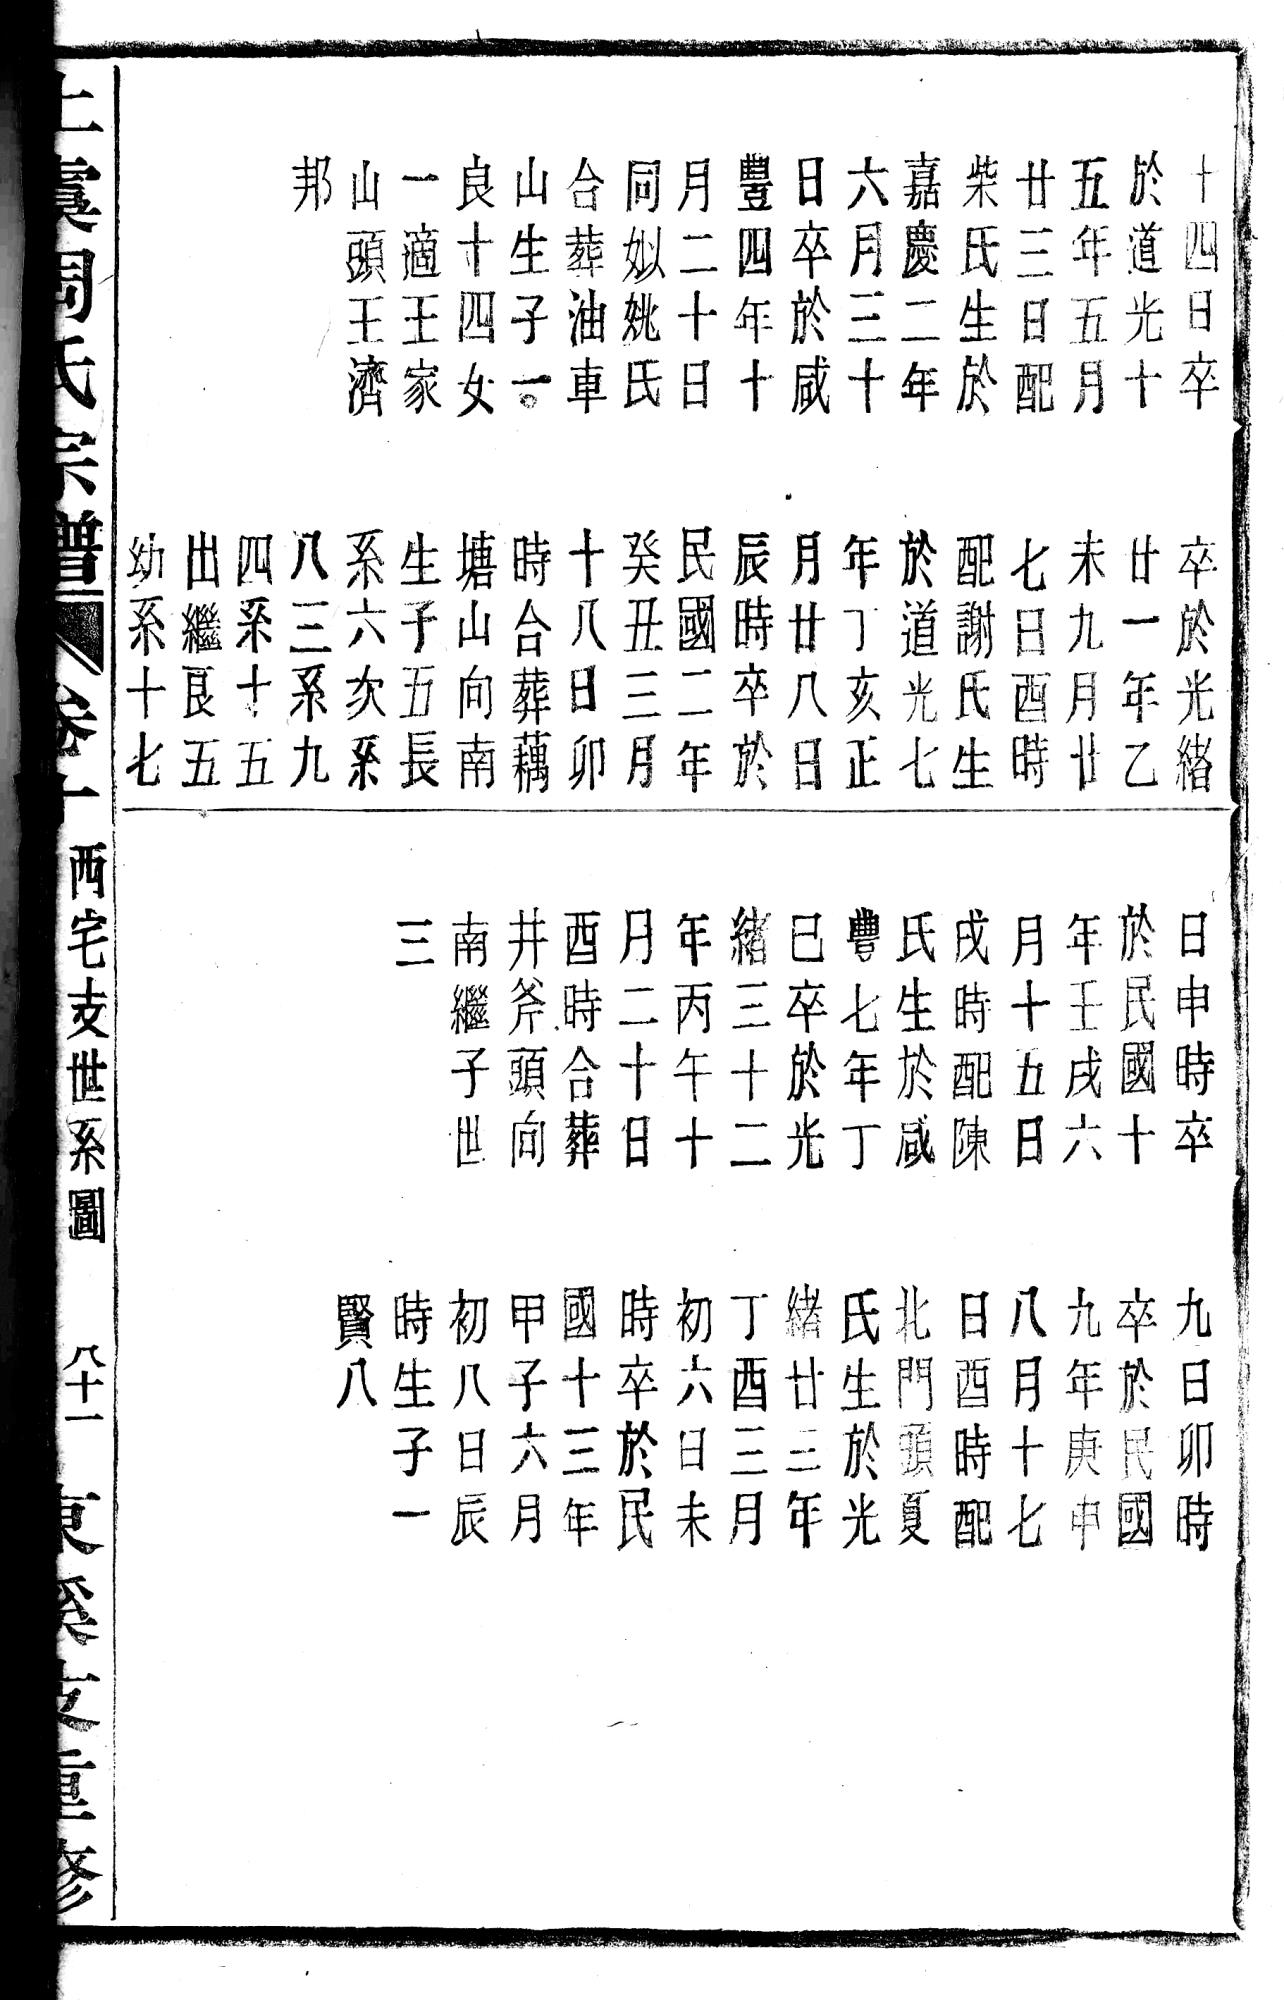 十四日卒
於道光十
五年五月
廿三日配
柴氏生於
嘉慶二年
六月三十
日卒於咸
豐四年十
月二十日
同姒姚氏
合葬油車
山生子一
良十四女
一適王家
山頭王濟
邦
卒於光緒
廿一年乙
未九月廿
七日酉時
配謝氏生
於道光七
年丁亥正
月廿八日
辰時卒於
民國二年
癸丑三月
十八日卯
時合葬藕
塘山向南
生子五長
系六次系
八三系九
四系十五
出繼良五
幼系十七
日申時卒
於民國十
年壬戌六
月十五日
戌時配陳
氏生於咸
豐七年丁
巳卒於光
緒三十二
年丙午十
月二十日
酉時合葬
井斧頭向
南繼子世
三
九日卯時
卒於民國
九年庚申
八月十七
日酉時配
北門頭夏
氏生於光
緒廿三年
丁酉三月
初六日未
時卒於民
國十三年
甲子六月
初八日辰
時生子一
賢八
上虞周氏宗譜 卷十 西宅支世系圖 八十一 東溪支重修